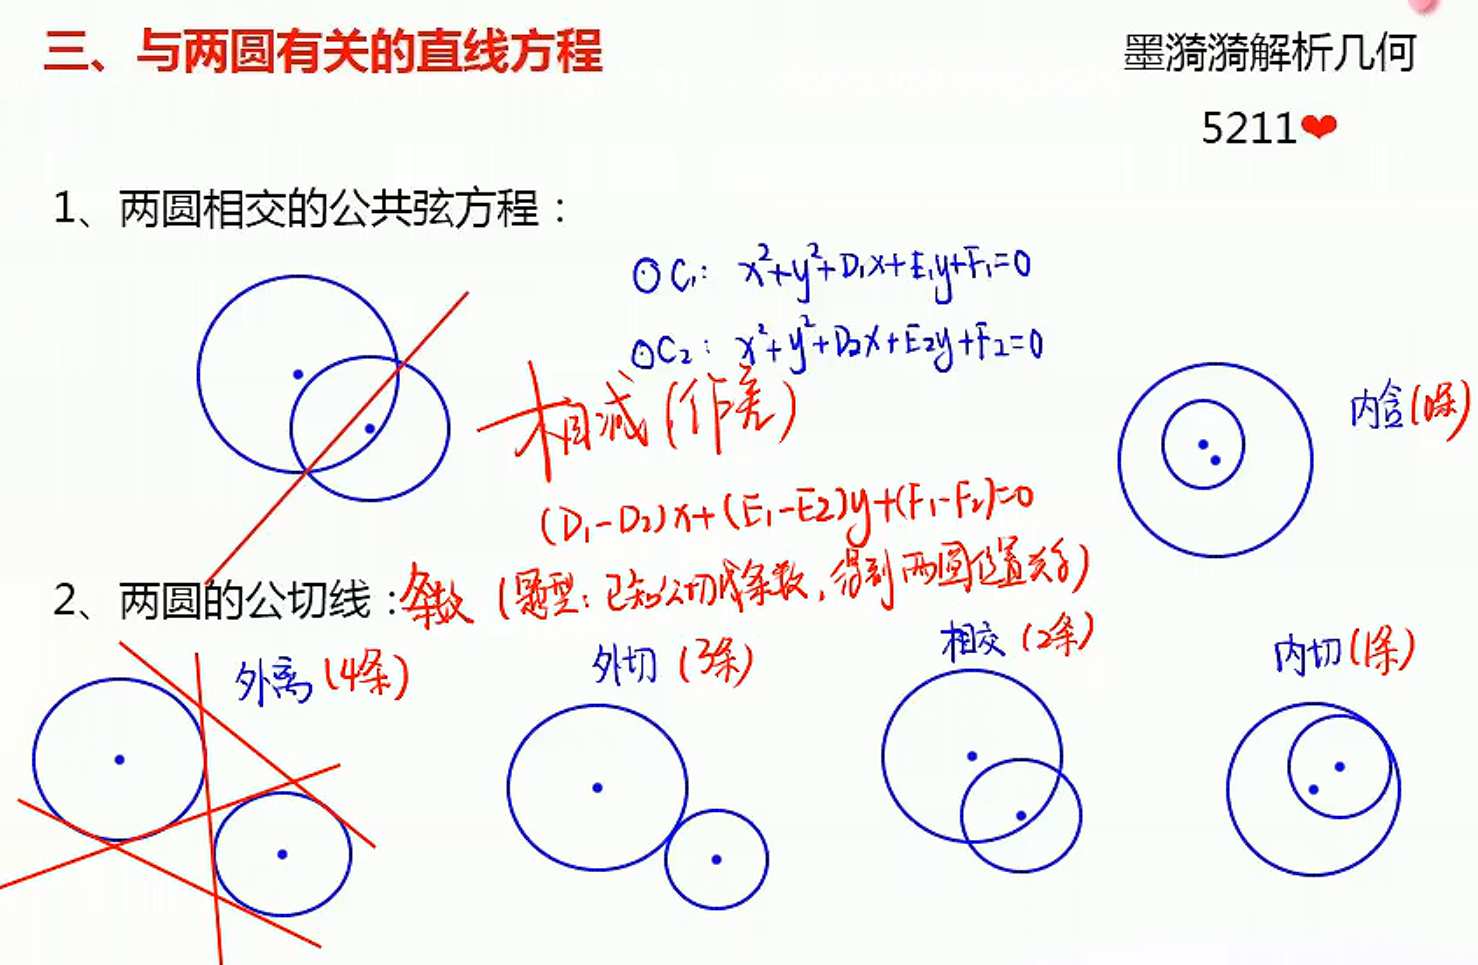 三、与两圆有关的直线方程
墨漪漪解析几何
5211❤
1、两圆相交的公共弦方程：
⊙C₁: x²+y²+D₁x+E₁y+F₁=0
⊙C₂: x²+y²+D₂x+E₂y+F₂=0
相减(作差)
内含(0条)
(D₁-D₂)x+(E₁-E₂)y+(F₁-F₂)=0
2、两圆的公切线：条数(题型:已知公切线条数,得到两圆位置关系)
外离(4条)
外切(3条)
相交(2条)
内切(1条)